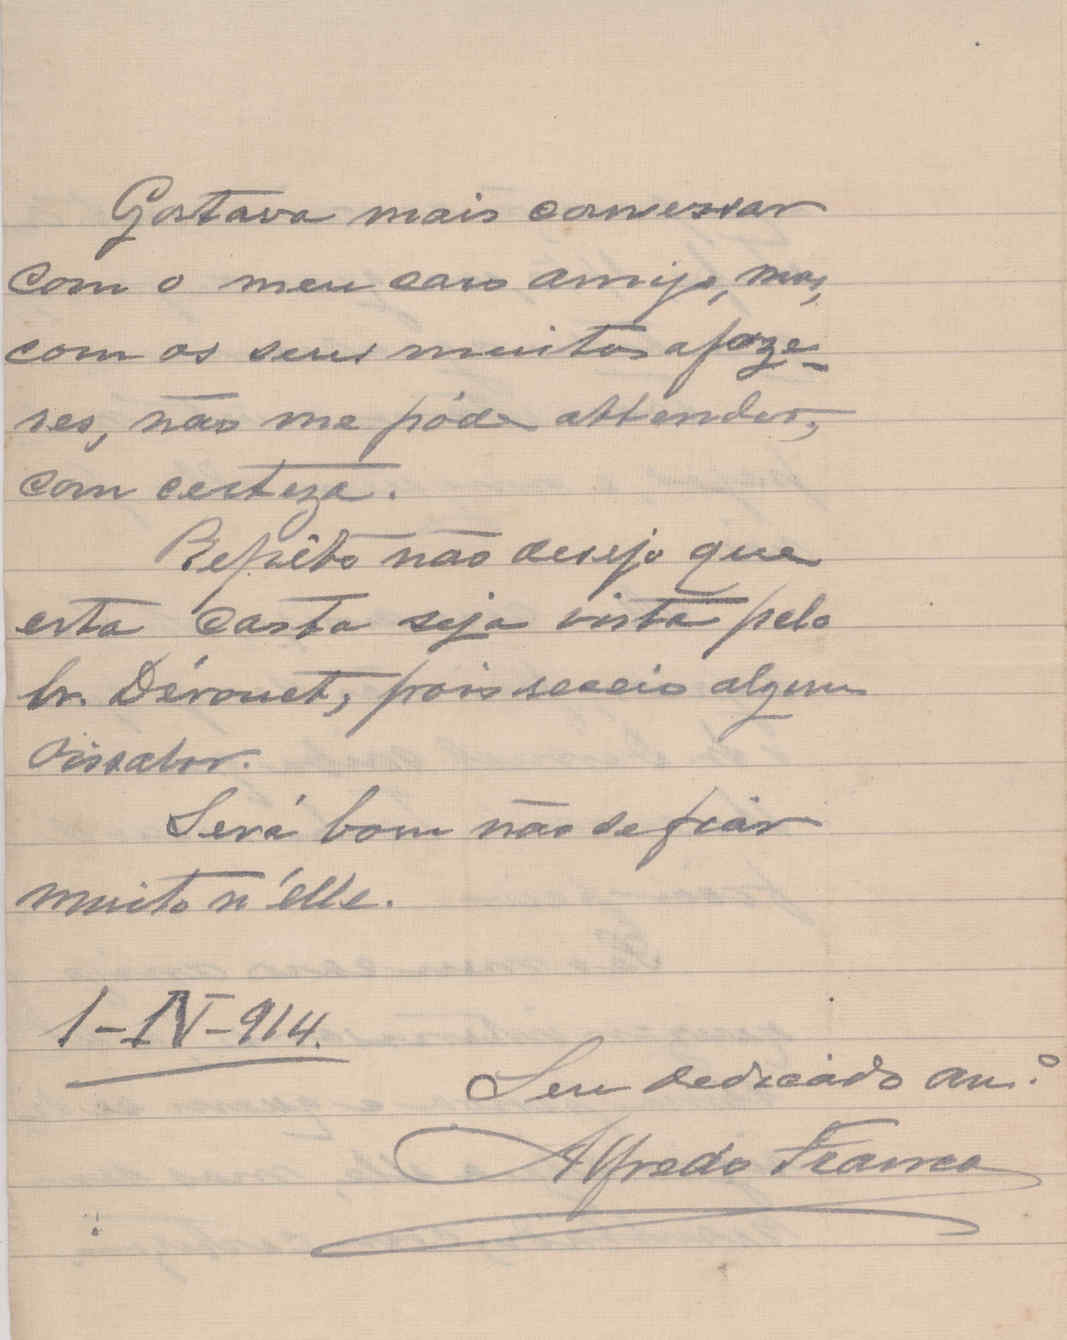 Gostava mais conversar
com o meu caro amigo, mas,
com os seus muitos afaze-
res, não me póde attender,
com certeza.
Repito não desejo que
esta carta seja vista pelo
Sr. Dérouet, pois receeio algum
dissabor.
Será bom não se fiar
muito n'elle.
1-IV-914.
Seu dedicado am.º
Alfredo Franco